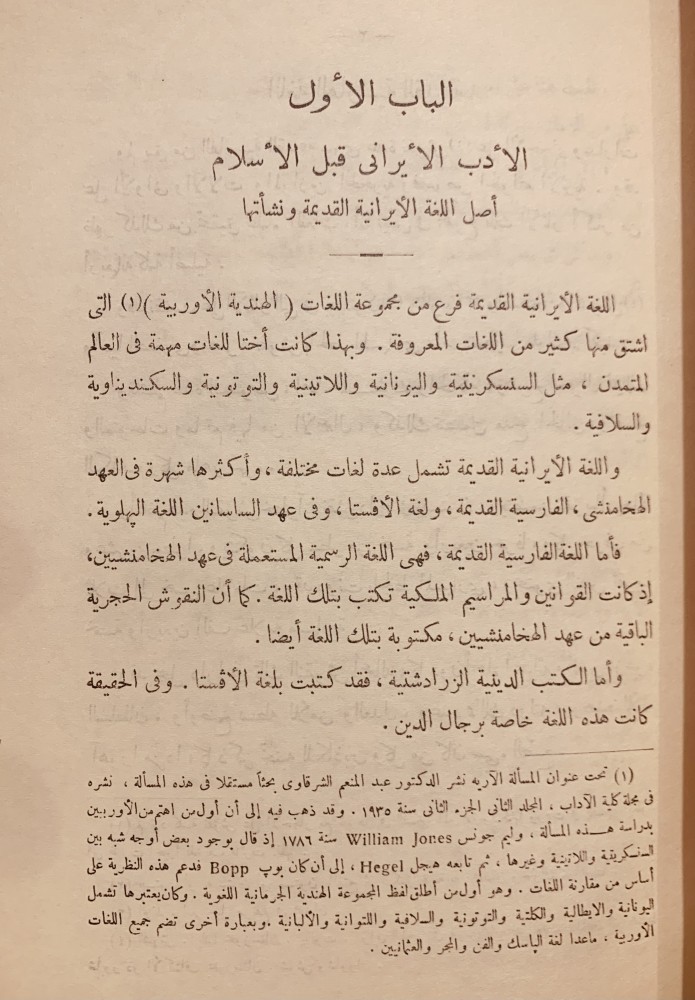 الباب الأول
الأدب الأيرانى قبل الأسلام
أصل اللغة الأيرانية القديمة ونشأتها
اللغة الأيرانية القديمة فرع من مجموعة اللغات ( الهندية الأوربية )(١) التى
اشتق منها كثير من اللغات المعروفة . وبهذا كانت أختا للغات مهمة فى العالم
المتمدن ، مثل السنسكريتية واليونانية واللاتينية والتوتونية والسكنديناوية
والسلافية .
واللغة الأيرانية القديمة تشمل عدة لغات مختلفة ، وأكثرها شهرة فى العهد
الهخامنشى ، الفارسية القديمة ، ولغة الأڤستا ، وفى عهد الساسانين اللغة الپهلوية .
فأما اللغة الفارسية القديمة ، فهى اللغة الرسمية المستعملة فى عهد الهخامنشيين،
إذ كانت القوانين والمراسيم الملكية تكتب بتلك اللغة . كما أن النقوش الحجرية
الباقية من عهد الهخامنشيين ، مكتوبة بتلك اللغة أيضا .
وأما الكتب الدينية الزرادشتية ، فقد كتبت بلغة الأڤستا . وفى الحقيقة
كانت هذه اللغة خاصة برجال الدين .
(١) تحت عنوان المسألة الآريه نشر الدكتور عبد المنعم الشرقاوى بحثاً مستقلا فى هذه المسألة ، نشره
فى مجلة كلية الآداب ، المجلد الثانى الجزء الثانى سنة ١٩٣٥ . وقد ذهب فيه إلى أن أول من اهتم من الأوربيين
بدراسة هذه المسألة ، وليم جونس William Jones سنة ١٧٨٦ إذ قال بوجود بعض أوجه شبه بين
السنكريتية واللاتينية وغيرها ، ثم تابعه هيجل Hegel ، إلى أن كان بوپ Bopp فدعم هذه النظرية على
أساس من مقارنة اللغات . وهو أول من أطلق لفظ المجموعة الهندية الجرمانية اللغوية . وكان يعتبرها تشمل
اليونانية والايطالية والكلتية والتوتونية والسلافية واللتوانية والألبانية . وبعبارة أخرى تضم جميع اللغات
الأوربية ، ماعدا لغة الباسك والفن والمجر والعثمانيين .